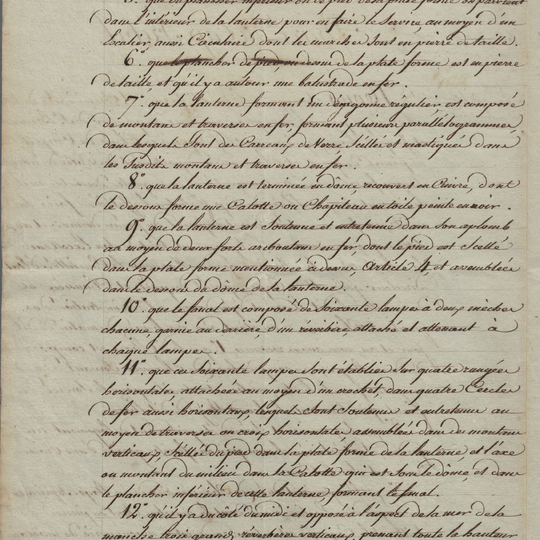 dans l'interieur de la lanterne pour en faire le Service, au moyen d'un
Escalier, aussi Circulaire dont les marches Sont en pierre de taille.
6°. que le plancher de au dessus de la plate forme est en pierre
de taille, et qu'il y a autour une balustrade en fer.
7°. que la lanterne formant un régulier, est composé
de montans et traverses en fer, formant plusieurs parallelogrammes
dans lesquels Sont des Carreaux de Verre Scellés et mastiqués dans
les Susdits montans et traverses en fer.
8°. que la lanterne est terminée en dôme recouvert en Cuivre, dont
le dessous forme une Calotte ou Chapiteau en tole peinte en noir.
9°. que la lanterne est Soutenue et entretenue dans Son aplomb
au moyen de deux forts arcboutans en fer, dont le pied est Scellé
dans la plate forme mentionnée à dessus, Article 4, et assemblés
dans le dessous du dôme de la lanterne.
10°. que le fanal est composé de Soixante lampes à deux mèches
chacune, garnie au derrière, d'un réverbère, attaché et attenant à
chaque lampe.
11°. que ces Soixante lampes Sont établies Sur quatre rangées
horisontales, attachées au moyen d'un crochet, dans quatre Cercles
de fer aussi horisontaux, lesquels Sont Soutenus et entretenus au
moyen de traverses en croix horisontales, assemblées dans des montans
verticaux, Scellés du pied dans la plate forme de la lanterne et l'axe
ou montant du milieu dans la Calotte qui est Sous le dôme, et dans
le plancher inférieur de cette lanterne, formant le fanal.
12°. qu'il y a du côté du midi et opposé à l'aspect de la mer de la
manche trois grands réverbères verticaux, prenant toute la hauteur